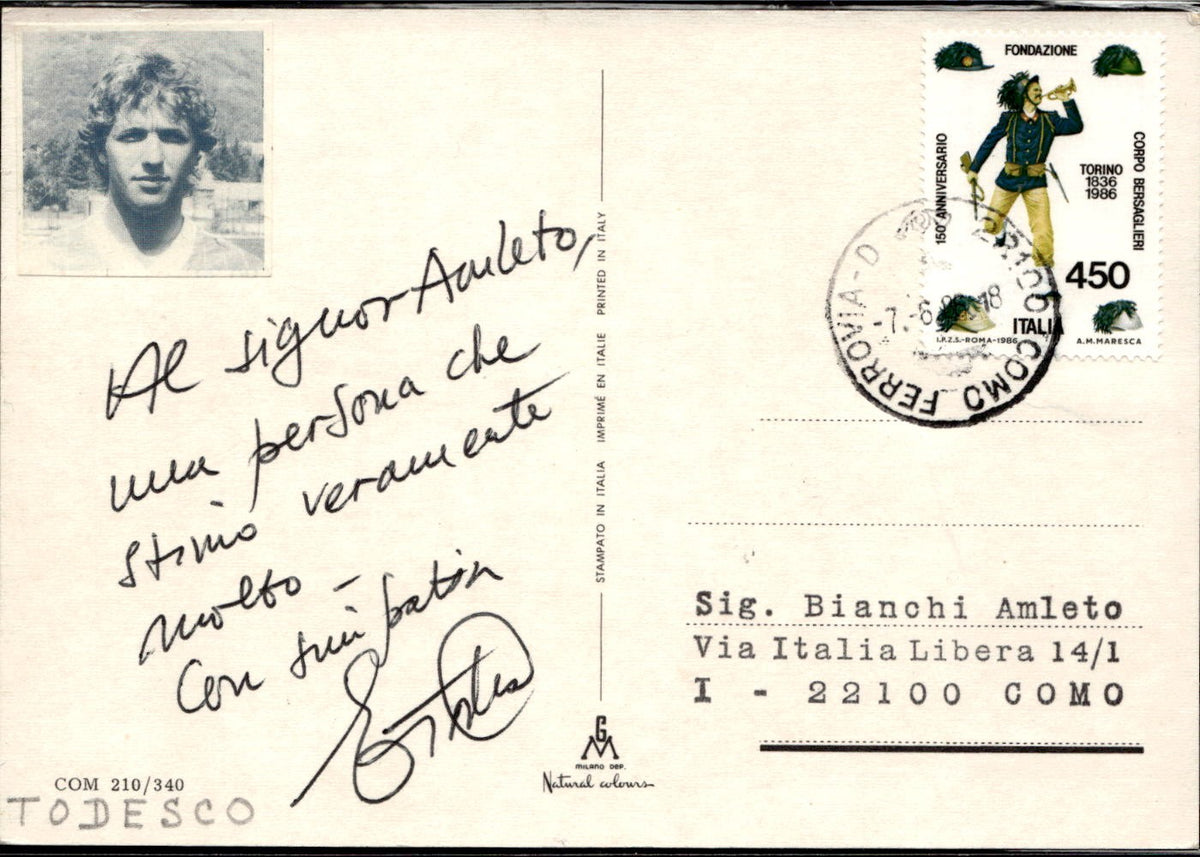 Al signor Amleto,
una persona che
stimo veramente
molto -
Con simpatia
COM 210/340
TODESCO
STAMPATO IN ITALIA IMPRIMÉ EN ITALIE PRINTED IN ITALY
GM
MILANO DEP.
Natural colours
FONDAZIONE
150° ANNIVERSARIO
CORPO BERSAGLIERI
TORINO
1836
1986
450
ITALIA
I.P.Z.S.-ROMA-1986
A.M.MARESCA
22100 COMO FERROVIA-D
-7.-6.86 18
Sig. Bianchi Amleto
Via Italia Libera 14/1
I - 22100 COMO